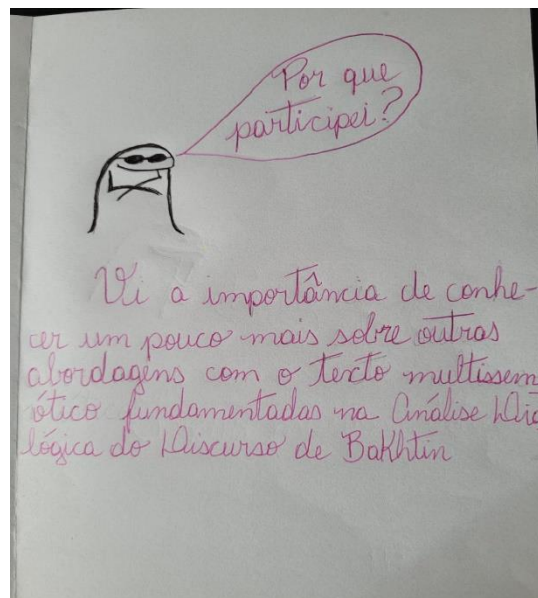 Por que
participei?
Vi a importância de conhe-
cer um pouco mais sobre outras
abordagens com o texto multissem
iótico fundamentadas na Análise Dia
lógica do Discurso de Bakhtin